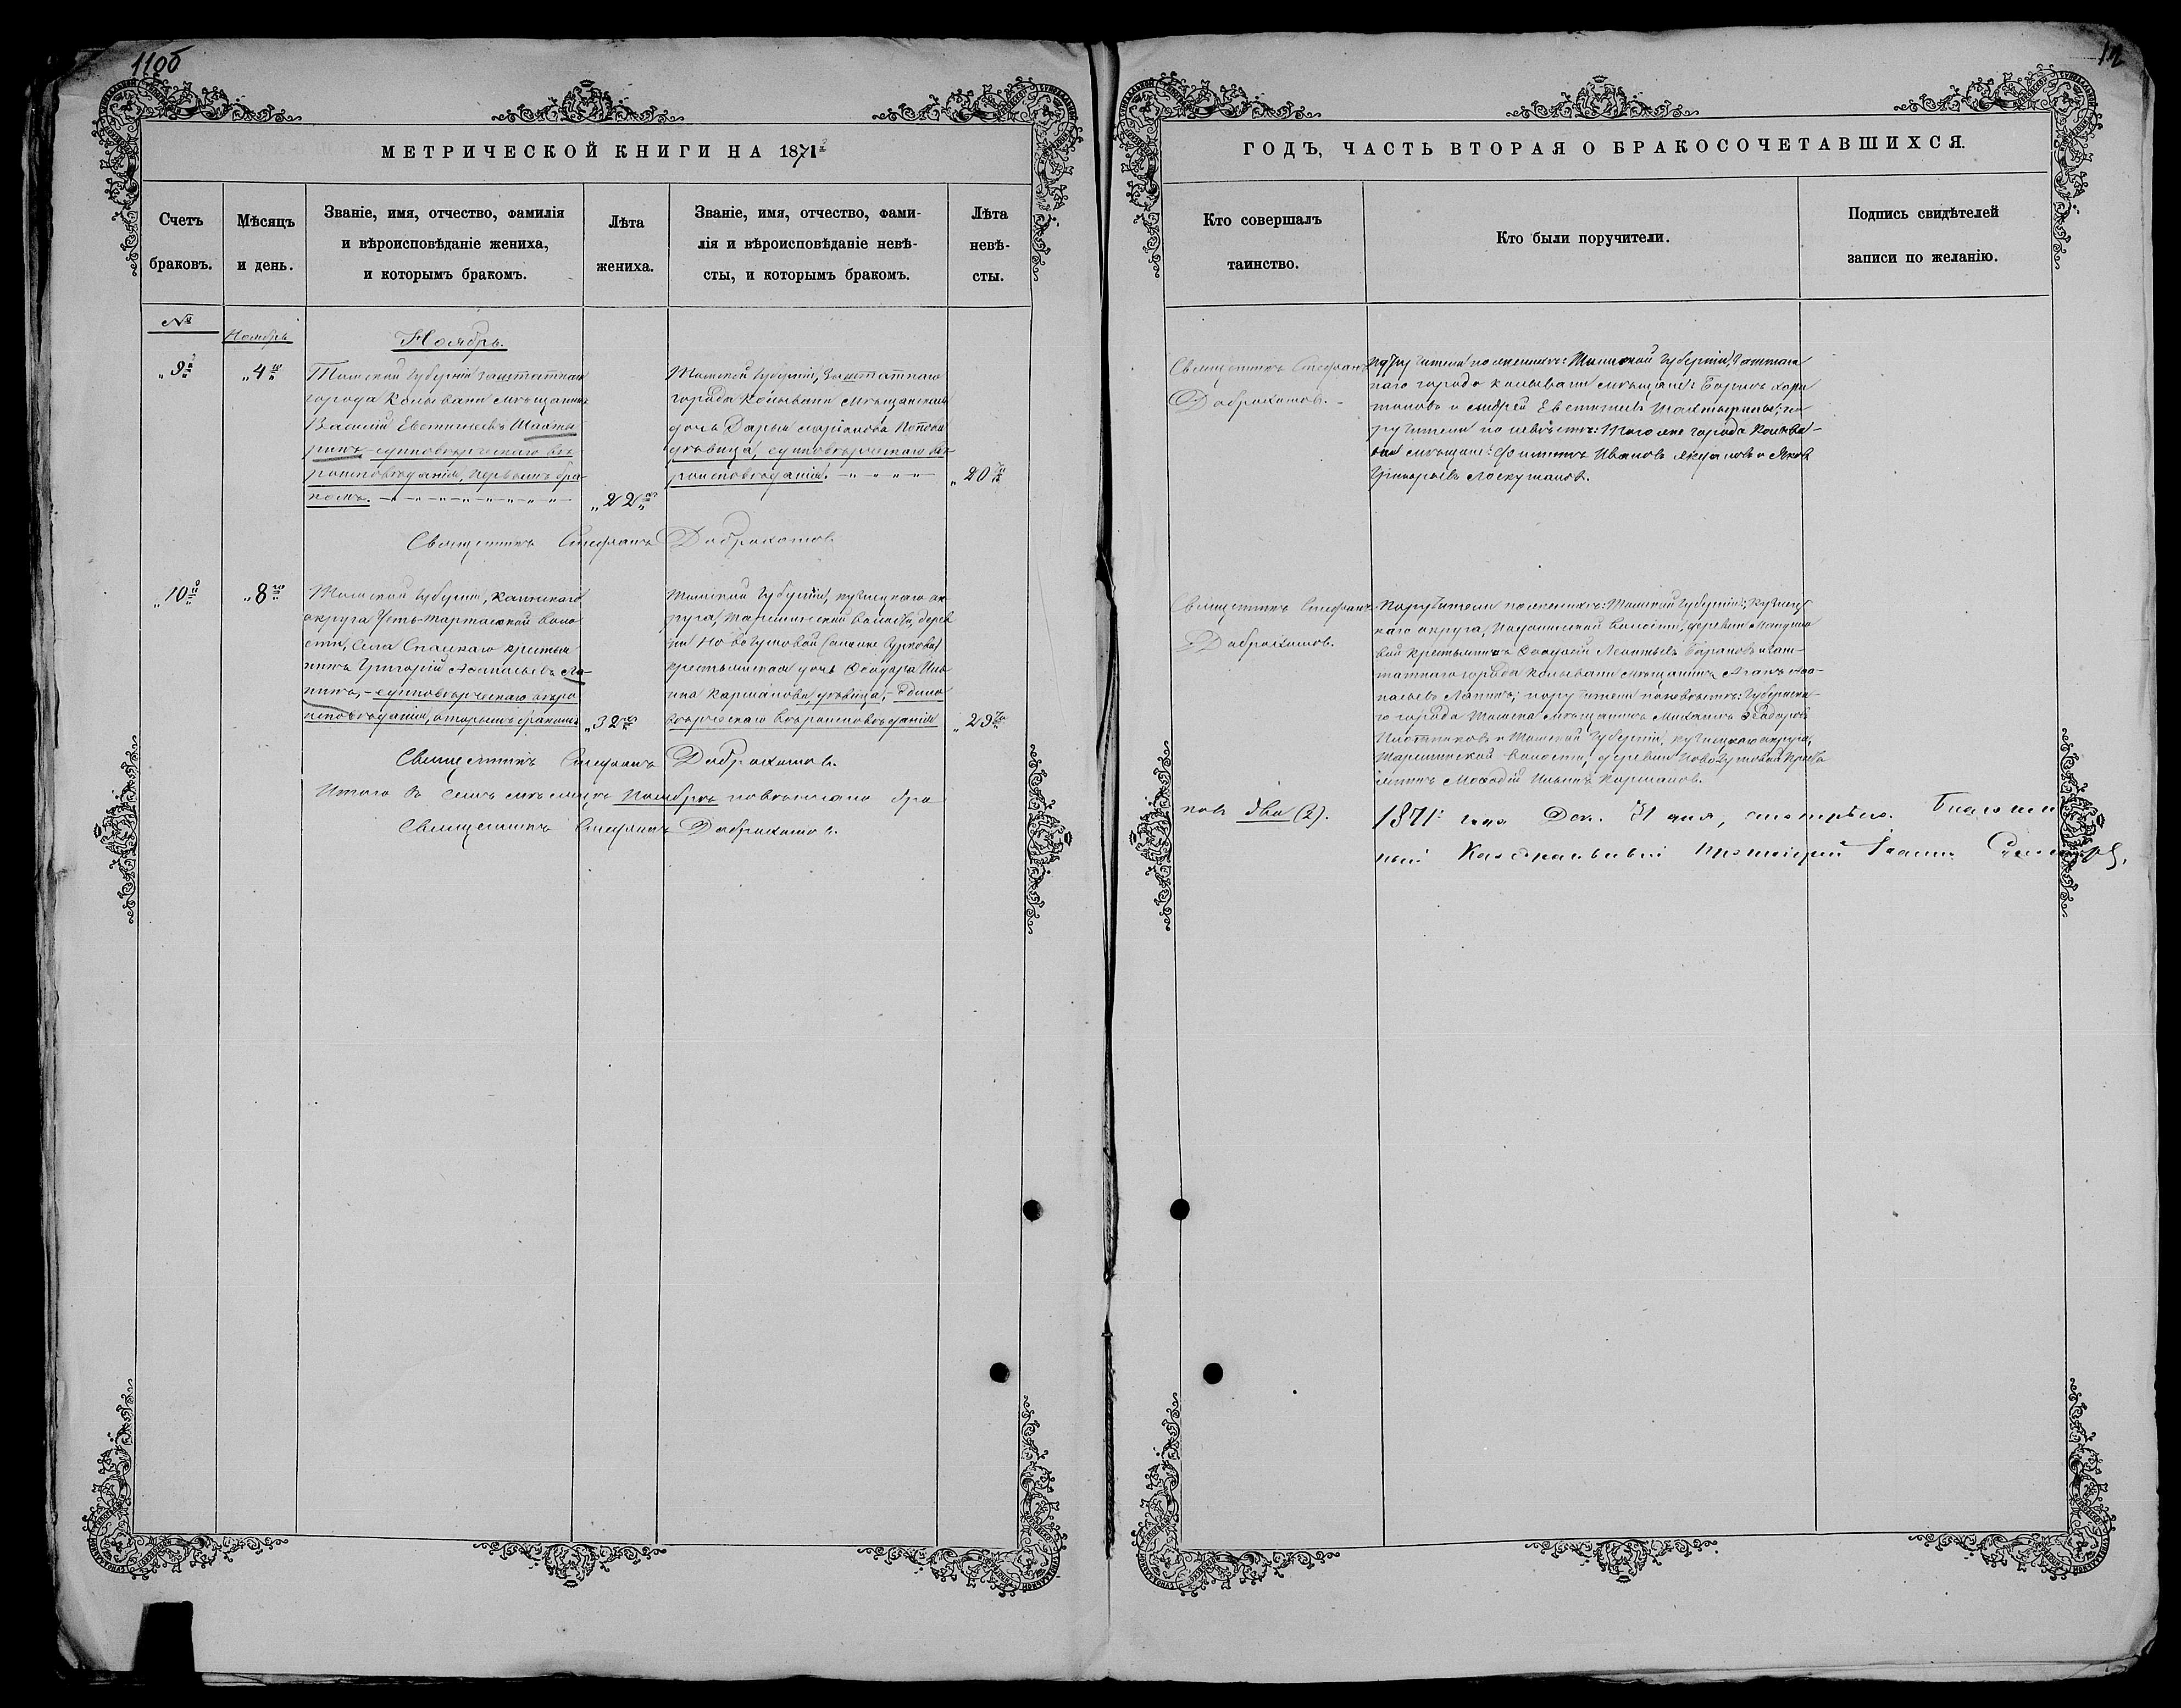 11об
12
МЕТРИЧЕСКОЙ КНИГИ НА 1871й
ГОДЪ, ЧАСТЬ ВТОРАЯ О БРАКОСОЧЕТАВШИХСЯ.
Счетъ
браковъ.
Мѣсяцъ
и день.
Званіе, имя, отчество, фамилія
и вѣроисповѣданіе жениха,
и которымъ бракомъ.
Лѣта
жениха.
Званіе, имя, отчество, фами-
лія и вѣроисповѣданіе невѣ-
сты, и которымъ бракомъ.
Лѣта
невѣ-
сты.
Кто совершалъ
таинство.
Кто были поручители.
Подпись свидѣтелей
записи по желанію.
№
Ноябрь
Ноябрь.
„9й
„4го
Томской Губерніи заштатнаго
города Колывани мѣщанинъ
Василій Евстигнѣевъ Шахты-
ринъ единовѣрческаго вѣ-
роисповѣданія, первымъ бра-
комъ.
„22хъ
Томской Губерніи, Заштатнаго
города Колывани мѣщанская
дочь Дарья Попова
дѣвица, единовѣрческаго вѣ-
роисповѣданія.
„20ти
Священникъ Стефанъ
Доброхотовъ.
Поручители по женихѣ: Томской Губерніи, Заштат-
наго города Колывани мѣщане: Борисъ Хари-
тоновъ и Андрей Евстигнѣевъ Шахтырины; по-
ручители по невѣстѣ: Того же города Колыва-
ни мѣщане: Филиппъ Ивановъ и Яковъ
Григорьевъ Лоскутовъ.
Священникъ Стефанъ Доброхотовъ.
„10й
„8го
Томской Губерніи, Каинскаго
округа Усть-Тартасской воло-
сти, Села Спасскаго крестья-
нинъ Григорій Аѳанасьевъ Ла-
пинъ, - единовѣрческаго вѣро-
исповѣданія, вторымъ бракомъ
„32хъ
Томской Губерніи, Кузнецкаго ок-
руга, Тарсминской волости, дерев-
ни
крестьянская дочь Ѳеодора Иль-
ина Карманова, дѣвица, - едино-
вѣрческаго вѣроисповѣданія
„29ти
Священникъ Стефанъ
Доброхотовъ.
Поручители по женихѣ: Томской Губерніи, Кузнец-
каго округа, волости, деревни
вой крестьянинъ Леонтьевъ Барановъ и заш-
татнаго города Колывани мѣщанинъ Аѳа-
насьевъ Лапинъ; поручители по невѣстѣ: Губернска-
го города Томска мѣщанинъ Михаилъ Ѳеодоровъ
Плотниковъ и Томской Губерніи, Кузнецкаго округа,
Тарсминской волости, деревни кресть-
янинъ Ильинъ Кармановъ.
Священникъ Стефанъ Доброхотовъ.
Итого въ семъ мѣсяцѣ Ноябрѣ повѣнчано бра-
ковъ два (2).
Священникъ Стефанъ Доброхотовъ.
1871 года Дек. 31 дня, смотрѣлъ. Благочин-
ный Каѳедральный Протоіерей Іоаннъ